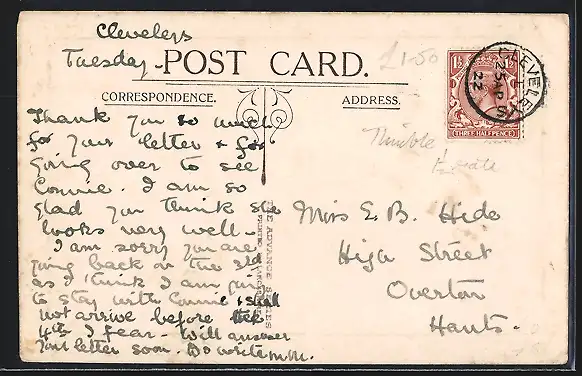 Cleveleys
Tuesday -
POST CARD.
CORRESPONDENCE.
ADDRESS.
£1-50
1½
1½
THREE HALF PENCE
CLEVELEYS
25 AP
22
Thank you so much
for your letter & for
going over to see
Connie. I am so
glad you think she
looks very well -
I am sorry you are
going back on the 3rd
as I think I am going
to stay with Connie & shall
not arrive before the
4th I fear - Will answer
your letter soon. Do write M.M.
THE ADVANCE SERIES
Miss E. B. Hide
High Street
Overton
Hants.